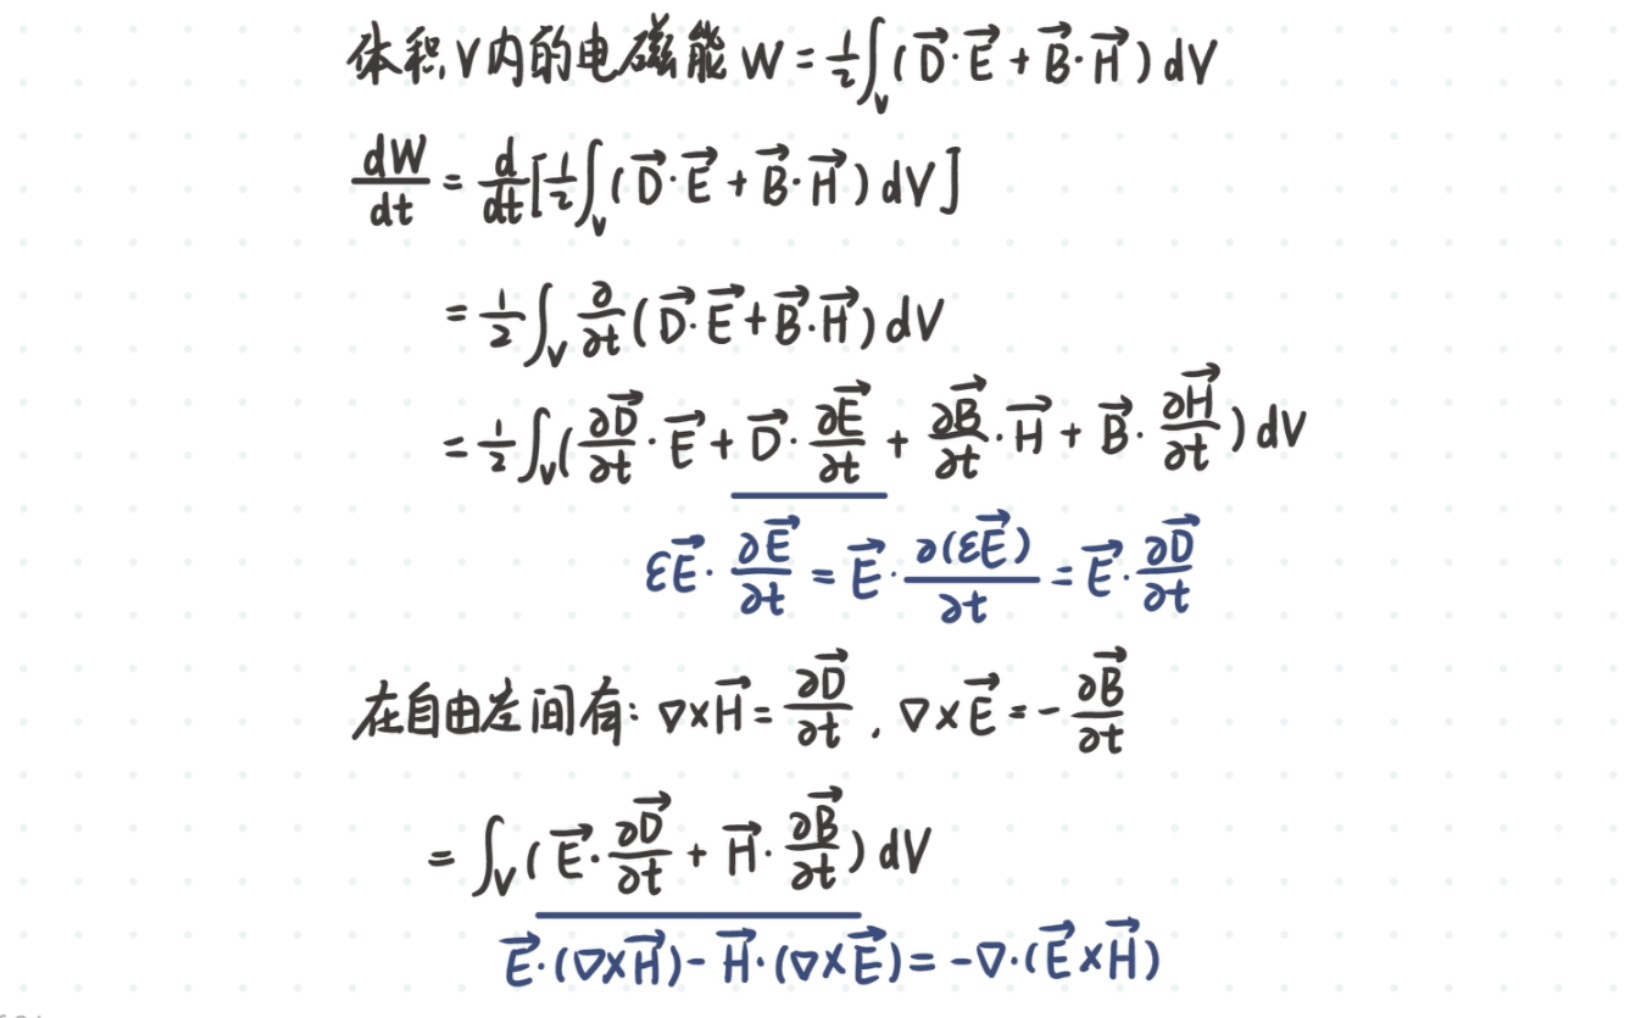 体积V内的电磁能 W = ½∫_V (D⃗·E⃗ + B⃗·H⃗) dV
dW/dt = d/dt[½∫_V (D⃗·E⃗ + B⃗·H⃗) dV]
= ½∫_V ∂/∂t (D⃗·E⃗ + B⃗·H⃗) dV
= ½∫_V (∂D⃗/∂t·E⃗ + D⃗·∂E⃗/∂t + ∂B⃗/∂t·H⃗ + B⃗·∂H⃗/∂t) dV
εE⃗·∂E⃗/∂t = E⃗·∂(εE⃗)/∂t = E⃗·∂D⃗/∂t
在自由差间有: ∇×H⃗ = ∂D⃗/∂t , ∇×E⃗ = -∂B⃗/∂t
= ∫_V (E⃗·∂D⃗/∂t + H⃗·∂B⃗/∂t) dV
E⃗·(∇×H⃗) - H⃗·(∇×E⃗) = -∇·(E⃗×H⃗)